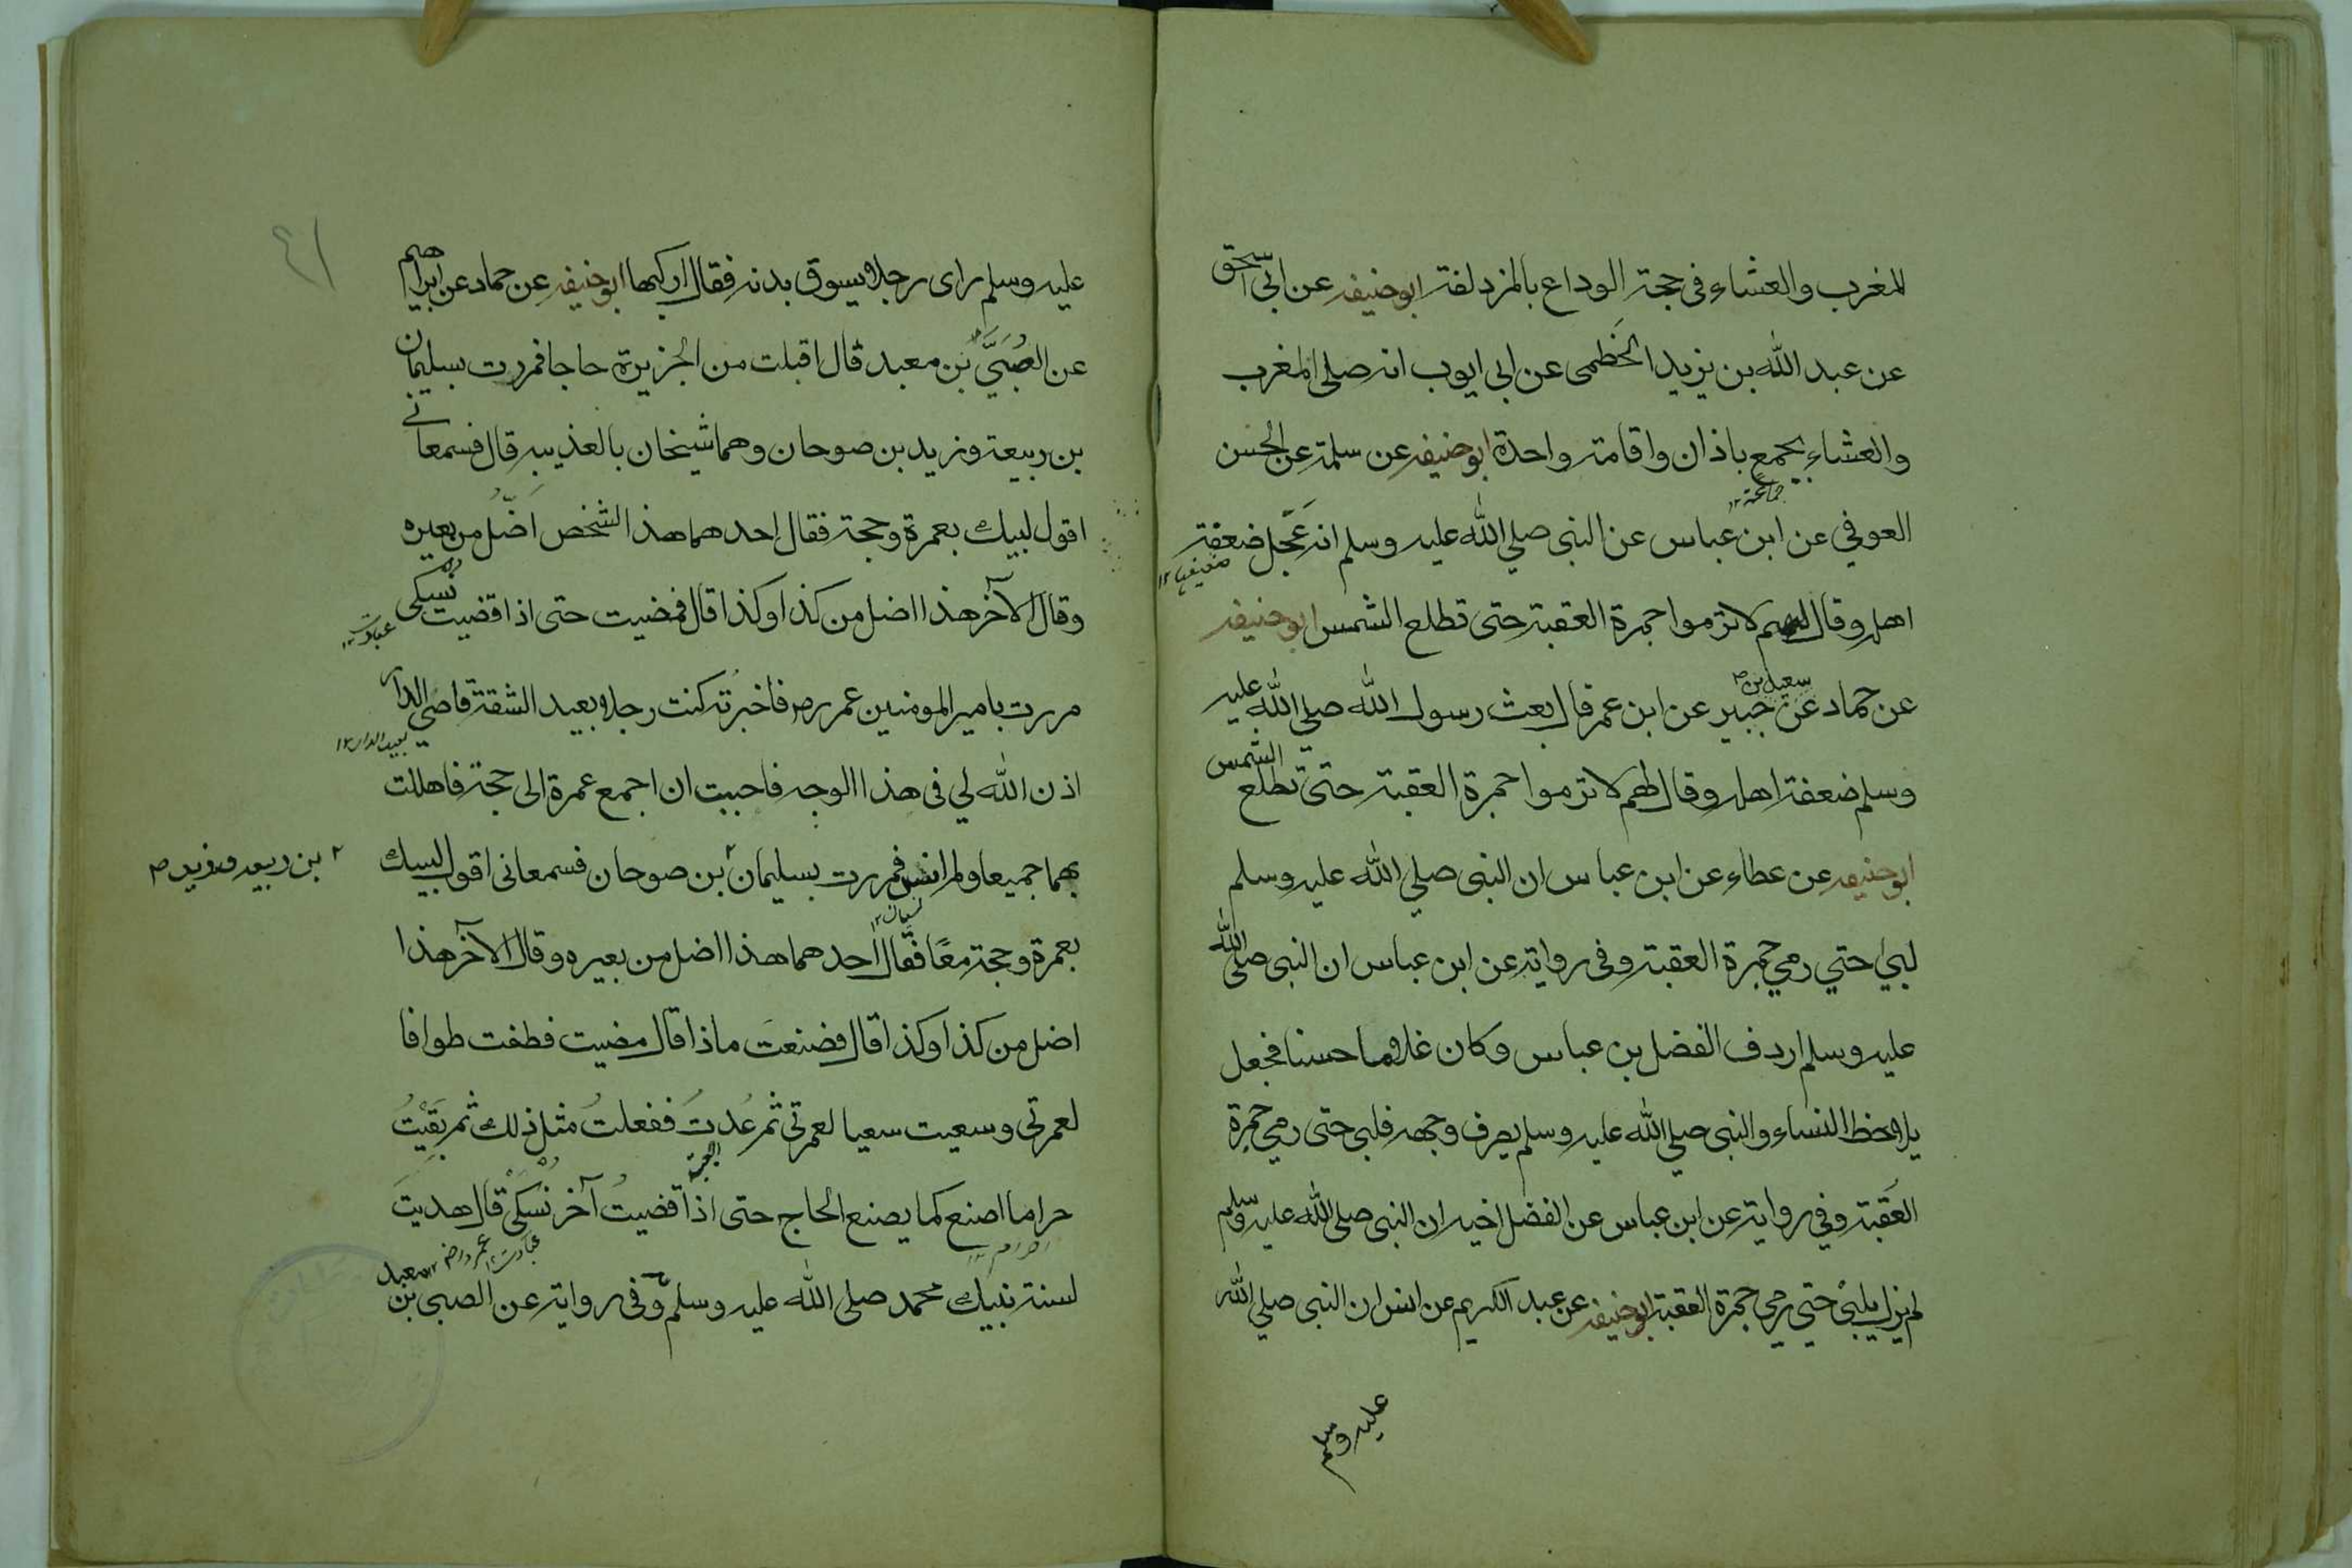 المغرب والعشاء فى حجة الوداع بالمزدلفة ابو حنيفه عن ابى اسحق
عن عبد الله بن يزيد الخطمى عن ابى ايوب انه صلى المغرب
والعشاء بجمع باذان واقامة واحدة ابو حنيفه عن سلمة عن الحسن
جماعة ١٢
العوفي عن ابن عباس عن النبى صلي الله عليه وسلم انه عَجَّل ضعفة
ضعيف ١٢
اهله وقال لهم لا ترموا جمرة العقبة حتى تطلع الشمس ابو حنيفه
سعيد بن صح
عن حماد عن جبير عن ابن عمر قال بعث رسول الله صلى الله عليه
وسلم ضعفة اهله وقال لهم لا ترموا جمرة العقبة حتى تطلع الشمس
ابو حنيفه عن عطاء عن ابن عباس ان النبى صلي الله عليه وسلم
لبي حتي رمي جمرة العقبة وفى رواية عن ابن عباس ان النبى صلى الله
عليه وسلم اردف الفضل بن عباس وكان غلاما حسنا فجعل
يلاحظ النساء والنبى صلي الله عليه وسلم يصرف وجهه فلبى حتى رمي جمرة
العقبة وفي رواية عن ابن عباس عن الفضل اخيه ان النبى صلى الله عليه وسلم
لم يزل يلبى حتي رمي جمرة العقبة ابو حنيفه عن عبد الكريم عن انس ان النبى صلي الله
عليه وسلم
٤١
عليه وسلم راى رجلا يسوق بدنة فقال اركبها ابو حنيفه عن حماد عن ابراهيم
عن الصُبَيَّ بن معبد قال اقبلت من الجزيرة حاجا فمررت بسليمان
بن ربيعة وزيد بن صوحان وهما شيخان بالعذيبه قال فسمعانى
اقول لبيك بعمرة وحجة فقال احدهما هذا الشخص اَضَلُّ من بعيره
وقال الآخر هذا اضل من كذا وكذا قال فمضيت حتى اذا قضيت نسكى
عبادت ١٢
مررت بامير المومنين عمر رض فاخبرته كنت رجلا بعيد الشقة قاصي الدار
بعيد الدار ١٢
اذن الله لي فى هذا الوجه فاحببت ان اجمع عمرة الى حجة فاهللت
بهما جميعا ولم انس فمررت بسليمان بن صوحان فسمعانى اقول لبيك
٢ بن ربيعه وزيد صح
نسيان ١٢
بعمرة وحجة معًا فقال احدهما هذا اضل من بعيره وقال الآخر هذا
اضل من كذا وكذا قال فصنعت ماذا قال مضيت فطفت طوافا
لعمرتى وسعيت سعيا لعمرتى ثم عُدتُ ففعلتُ مثل ذلك ثم بقيتُ
حراما اصنع كما يصنع الحاج حتى اذا قضيتُ آخر نُسُكى قال هديتَ
احرام ١٢
عبادت ١٢ عمر رض ١٢
لسنة نبيك محمد صلى الله عليه وسلم وفى رواية عن الصبى بن معبد